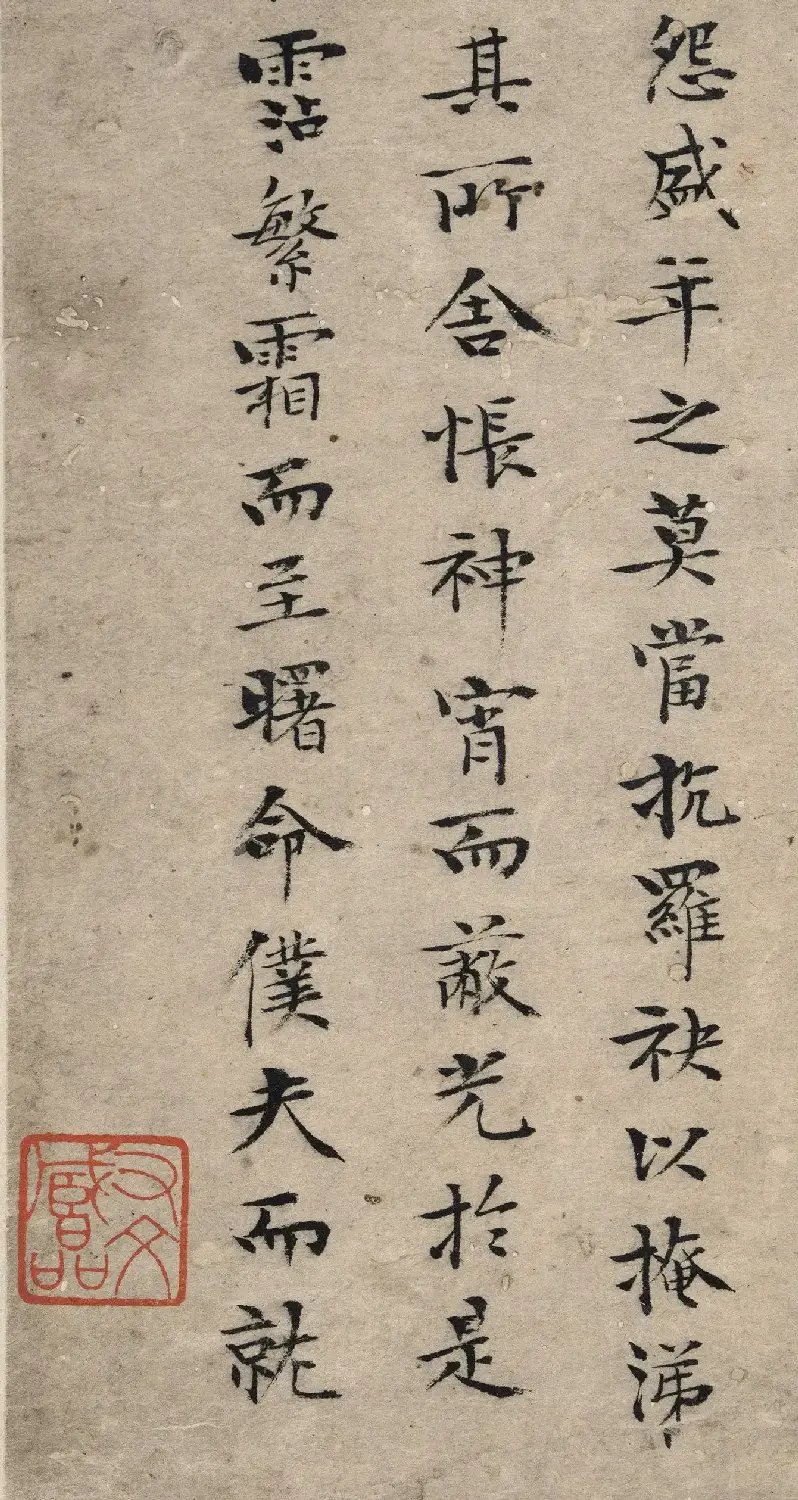 怨盛年之莫當抗羅袂以掩涕
其所舍悵神宵而蔽光於是
霑繁霜而至曙命僕夫而就